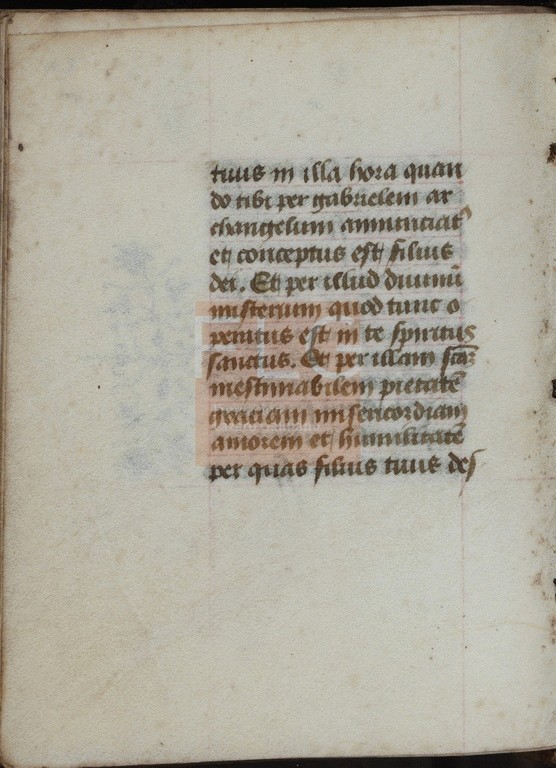 tuus in illa hora quan
do tibi per gabrielem ar
changelum annunciat᾿
et conceptus est filius
dei. Et per illud diuinū
misterium quod tunc o
peratus est in te spiritus
sanctus. Et per illam scāȝ
inestimabilem pietatē
graciam misericordiam
amorem et humilitatē
per quas filius tuus des